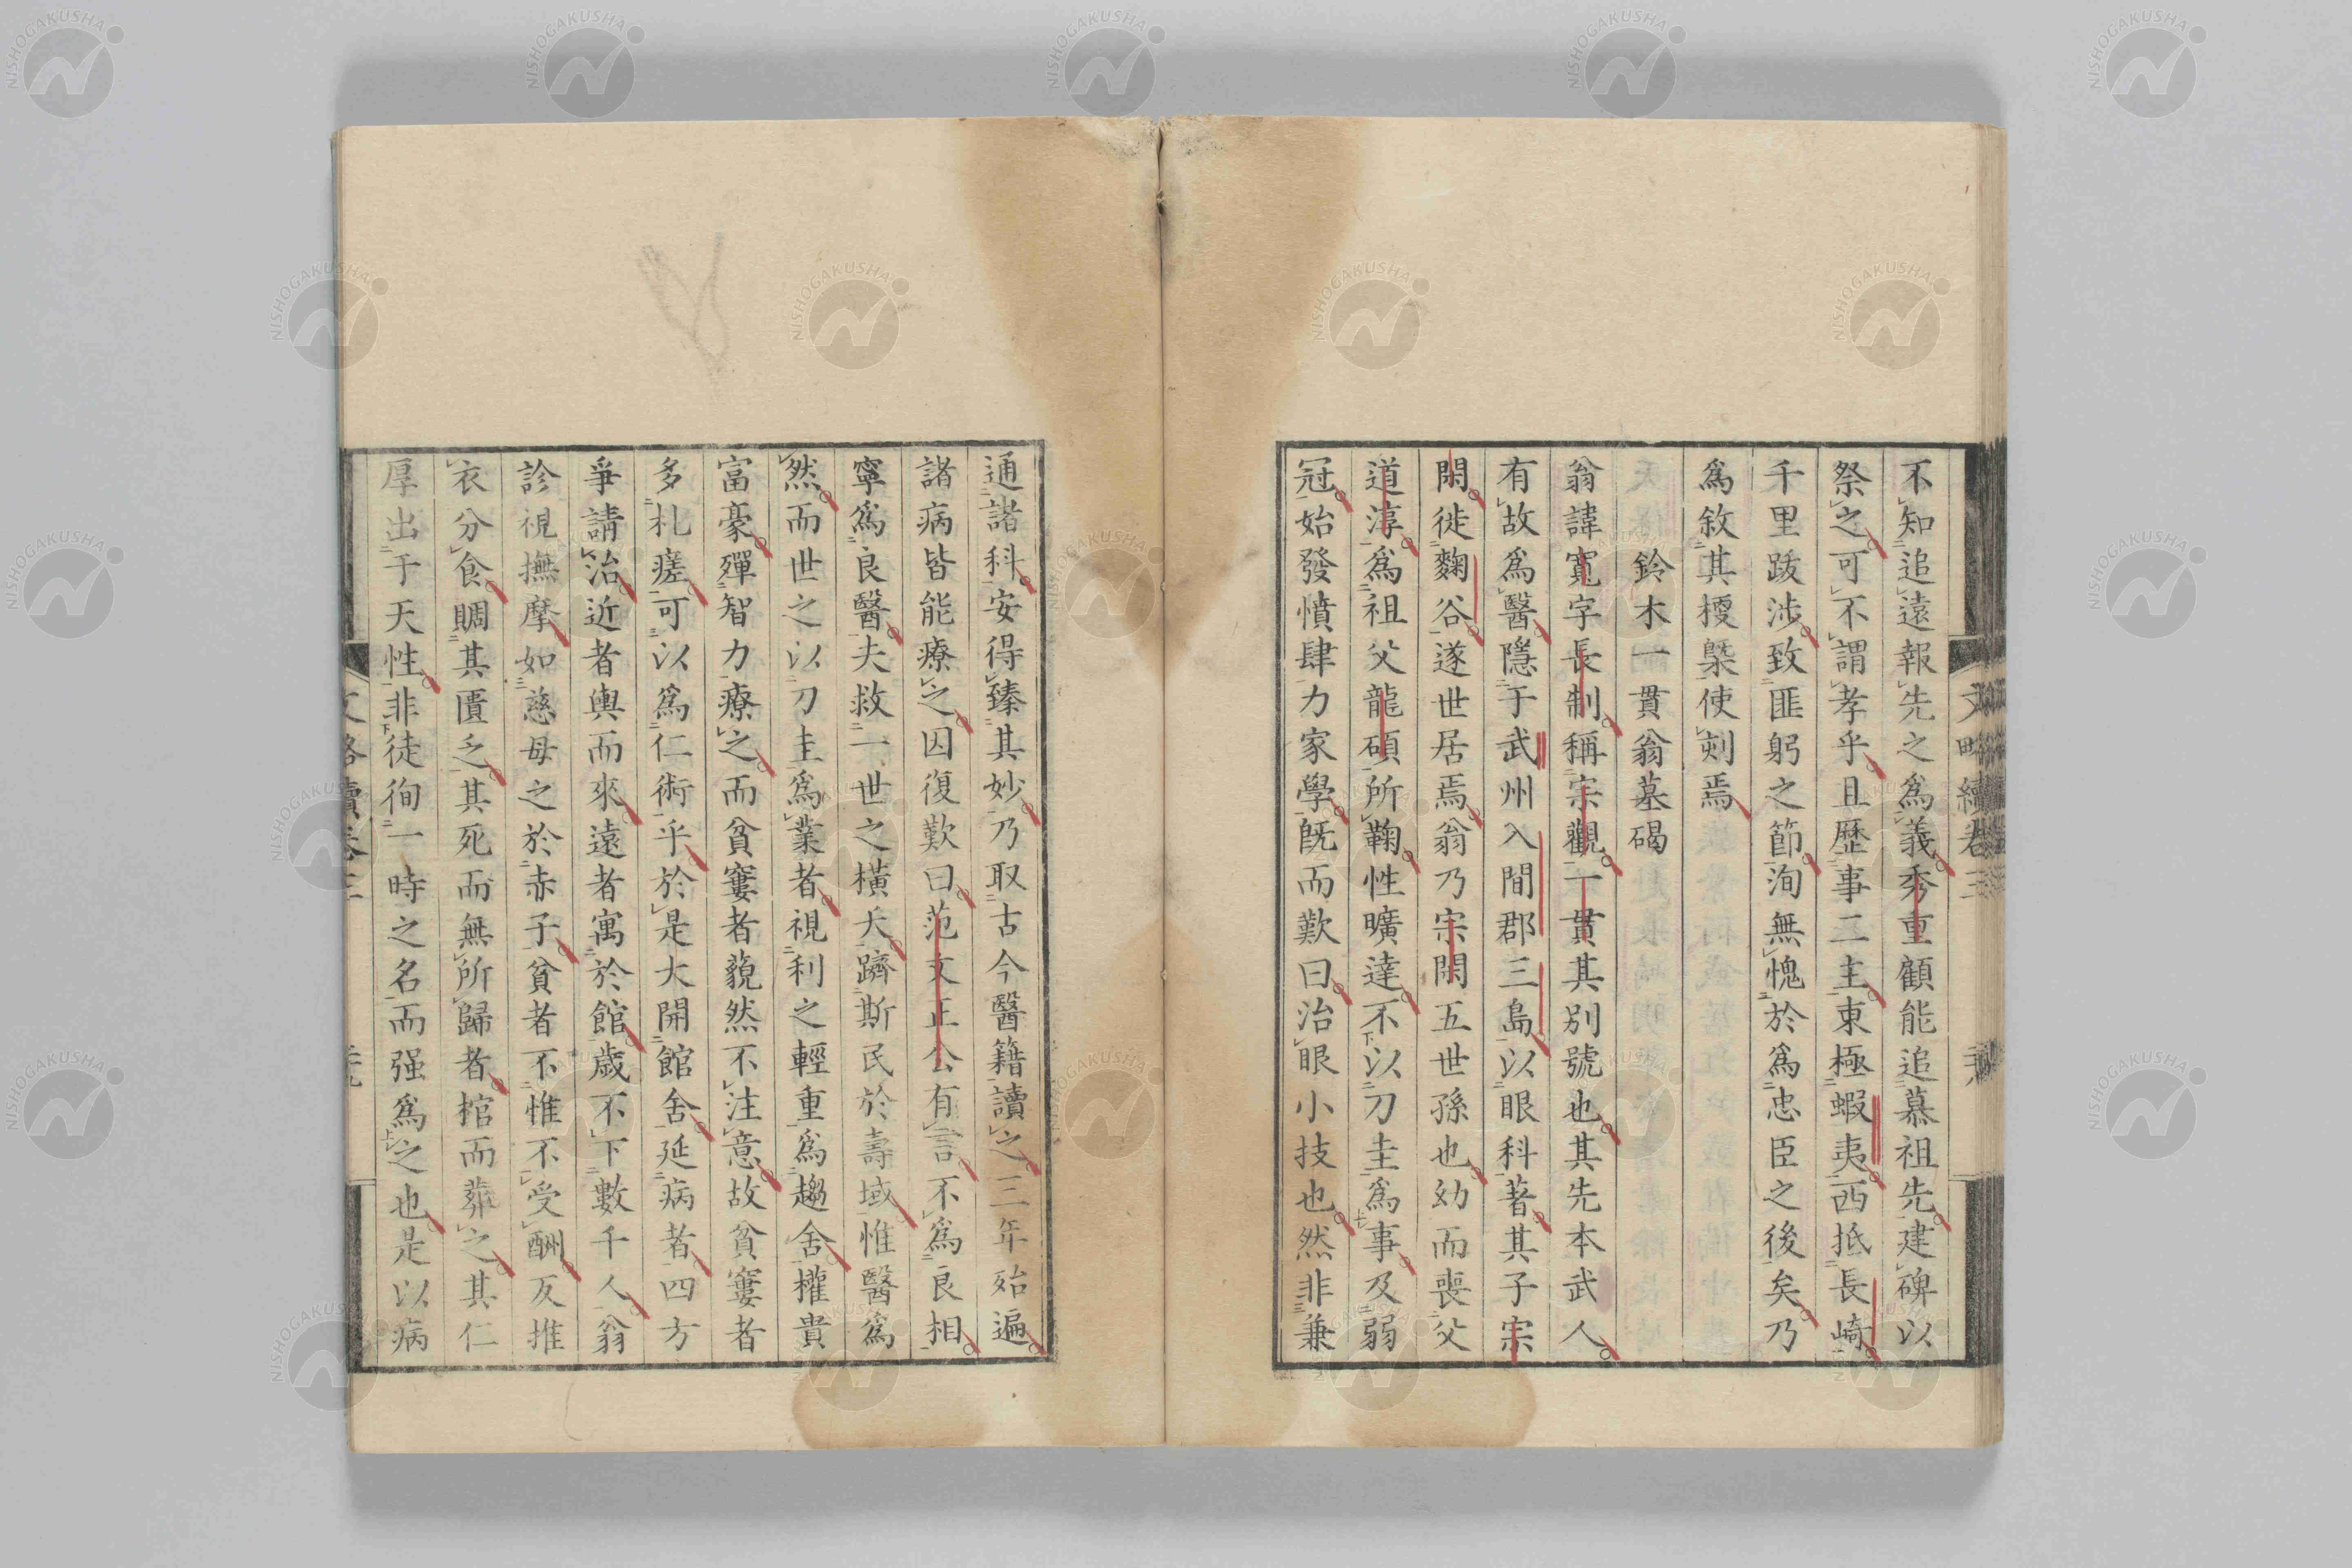 不知追遠報先之爲義秀重顧能追慕祖先建碑以
祭之可不謂孝乎且歷事二主東極蝦夷西抵長崎
千里跋涉致匪躬之節洵無愧於爲忠臣之後矣乃
爲敘其梗槩使刻焉
鈴木一貫翁墓碣
翁諱寬字長制稱宗觀一貫其別號也其先本武人
有故爲醫隱于武州入間郡三島以眼科著其子宗
閑徙麴谷遂世居焉翁乃宗閑五世孫也幼而喪父
道淳爲祖父龍碩所鞠性曠達不以刀圭爲事及弱
冠始發憤肆力家學旣而歎曰治眼小技也然非兼
通諸科安得臻其妙乃取古今醫籍讀之三年殆遍
諸病皆能療之因復歎曰范文正公有言不爲良相
寧爲良醫夫救一世之橫夭躋斯民於壽域惟醫爲
然而世之以刀圭爲業者視利之輕重爲趨舍權貴
富豪殫智力療之而貧窶者藐然不注意故貧窶者
多札瘥可以爲仁術乎於是大開館舍延病者四方
爭請治近者輿而來遠者寓於館歲不下數千人翁
診視撫摩如慈母之於赤子貧者不惟不受酬反推
衣分食賙其匱乏其死而無所歸者棺而葬之其仁
厚出于天性非徒徇一時之名而强爲之也是以病
文略續卷三
NISHOGAKUSHA